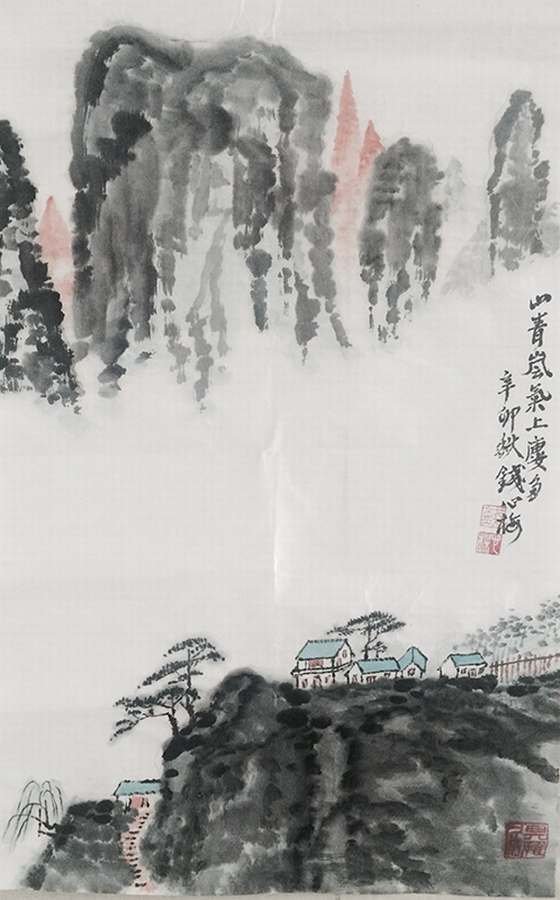 山青嵐氣上廔多
辛卯秋錢心梅